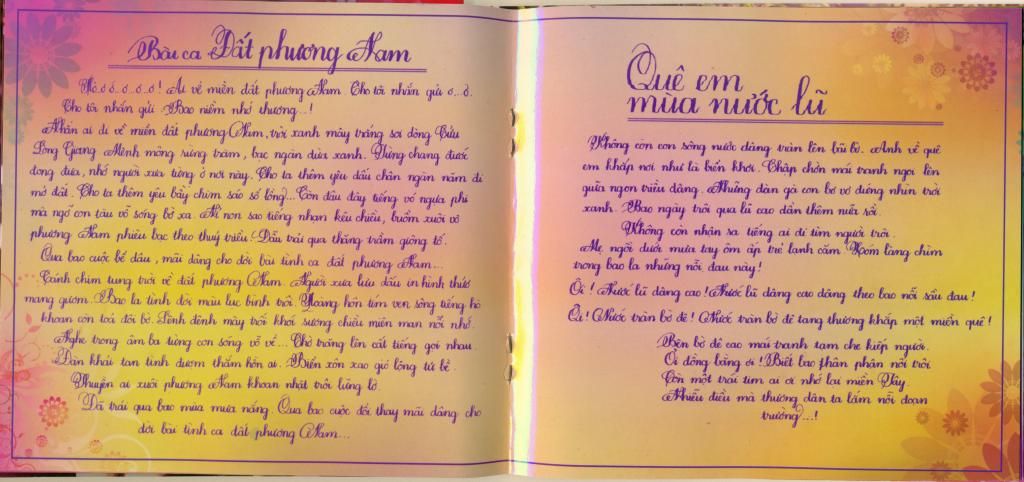 Bài ca Đất phương Nam
Hò.ó.ó..o..o..o! Ai về miền đất phương Nam. Cho tôi nhắn gửi ơ...ơ.
Cho tôi nhắn gửi. Bao niềm nhớ thương...!
Nhắn ai đi về miền đất phương Nam, trời xanh mây trắng soi dòng Cửu
Long Giang. Mênh mông rừng tràm, bạc ngàn dừa xanh. Từng chang đước
đong đưa, nhớ người xưa từng ở nơi này. Cho ta thêm yêu dấu chân ngàn năm đi
mở đất. Cho ta thêm yêu bầy chim sáo sổ lồng... Còn đâu đây tiếng vó ngựa phi
mà ngỡ con tàu vỗ sóng bờ xa. Nỉ non sao tiếng nhạn kêu chiều, buồm xuôi về
phương Nam phiêu bạc theo thuỷ triều. Dẫu trải qua thăng trầm giông tố.
Qua bao cuộc bể dâu, mãi dâng cho đời bài tình ca đất phương Nam...
Cánh chim tung trời về đất phương Nam. Người xưa lưu dấu in hình thức
mang gươm. Bao la tình đời màu lục bình trôi. Hoàng hôn tím ven sông tiếng hò
khoan còn toả đôi bờ. Lênh đênh mây trời khói sương chiều miên man nỗi nhớ.
Nghe trong âm ba từng con sóng vỗ về... Chờ trăng lên cất tiếng gọi nhau.
Dân khai tan tình đượm thắm hồn ai. Biển xôn xao gió lộng tứ bề.
Thuyền ai xuôi phương Nam khoan nhặt trôi lửng lờ.
Đã trải qua bao mùa mưa nắng. Qua bao cuộc đổi thay mãi dâng cho
đời bài tình ca đất phương Nam...
Quê em
mùa nước lũ
Không còn con sông nước dâng tràn lên bãi bờ. Anh về quê
em khắp nơi như là biển khơi. Chập chờn mái tranh ngoi lên
giữa ngọn triều dâng. Những đàn gà con bơ vơ đứng nhìn trời
xanh. Bao ngày trôi qua lũ cao dần thêm nữa rồi.
Không còn nhận ra tiếng ai đi tìm người trôi.
Mẹ ngồi dưới mưa tay ôm ấp trẻ lạnh căm. Xóm làng chìm
trong bao la những nỗi đau này!
Ôi! Nước lũ dâng cao! Nước lũ dâng cao dâng theo bao nỗi sầu đau!
Ôi! Nước tràn bờ đê! Nước tràn bờ đê tang thương khắp một miền quê!
Bên bờ đê cao mái tranh tạm che kiếp người.
Ôi đồng bằng ơi! Biết bao thân phận nổi trôi.
Còn một trái tim ai ơi nhớ lại miền Tây.
Nhiễu điều mà thương dân ta lắm nỗi đoạn
trường...!